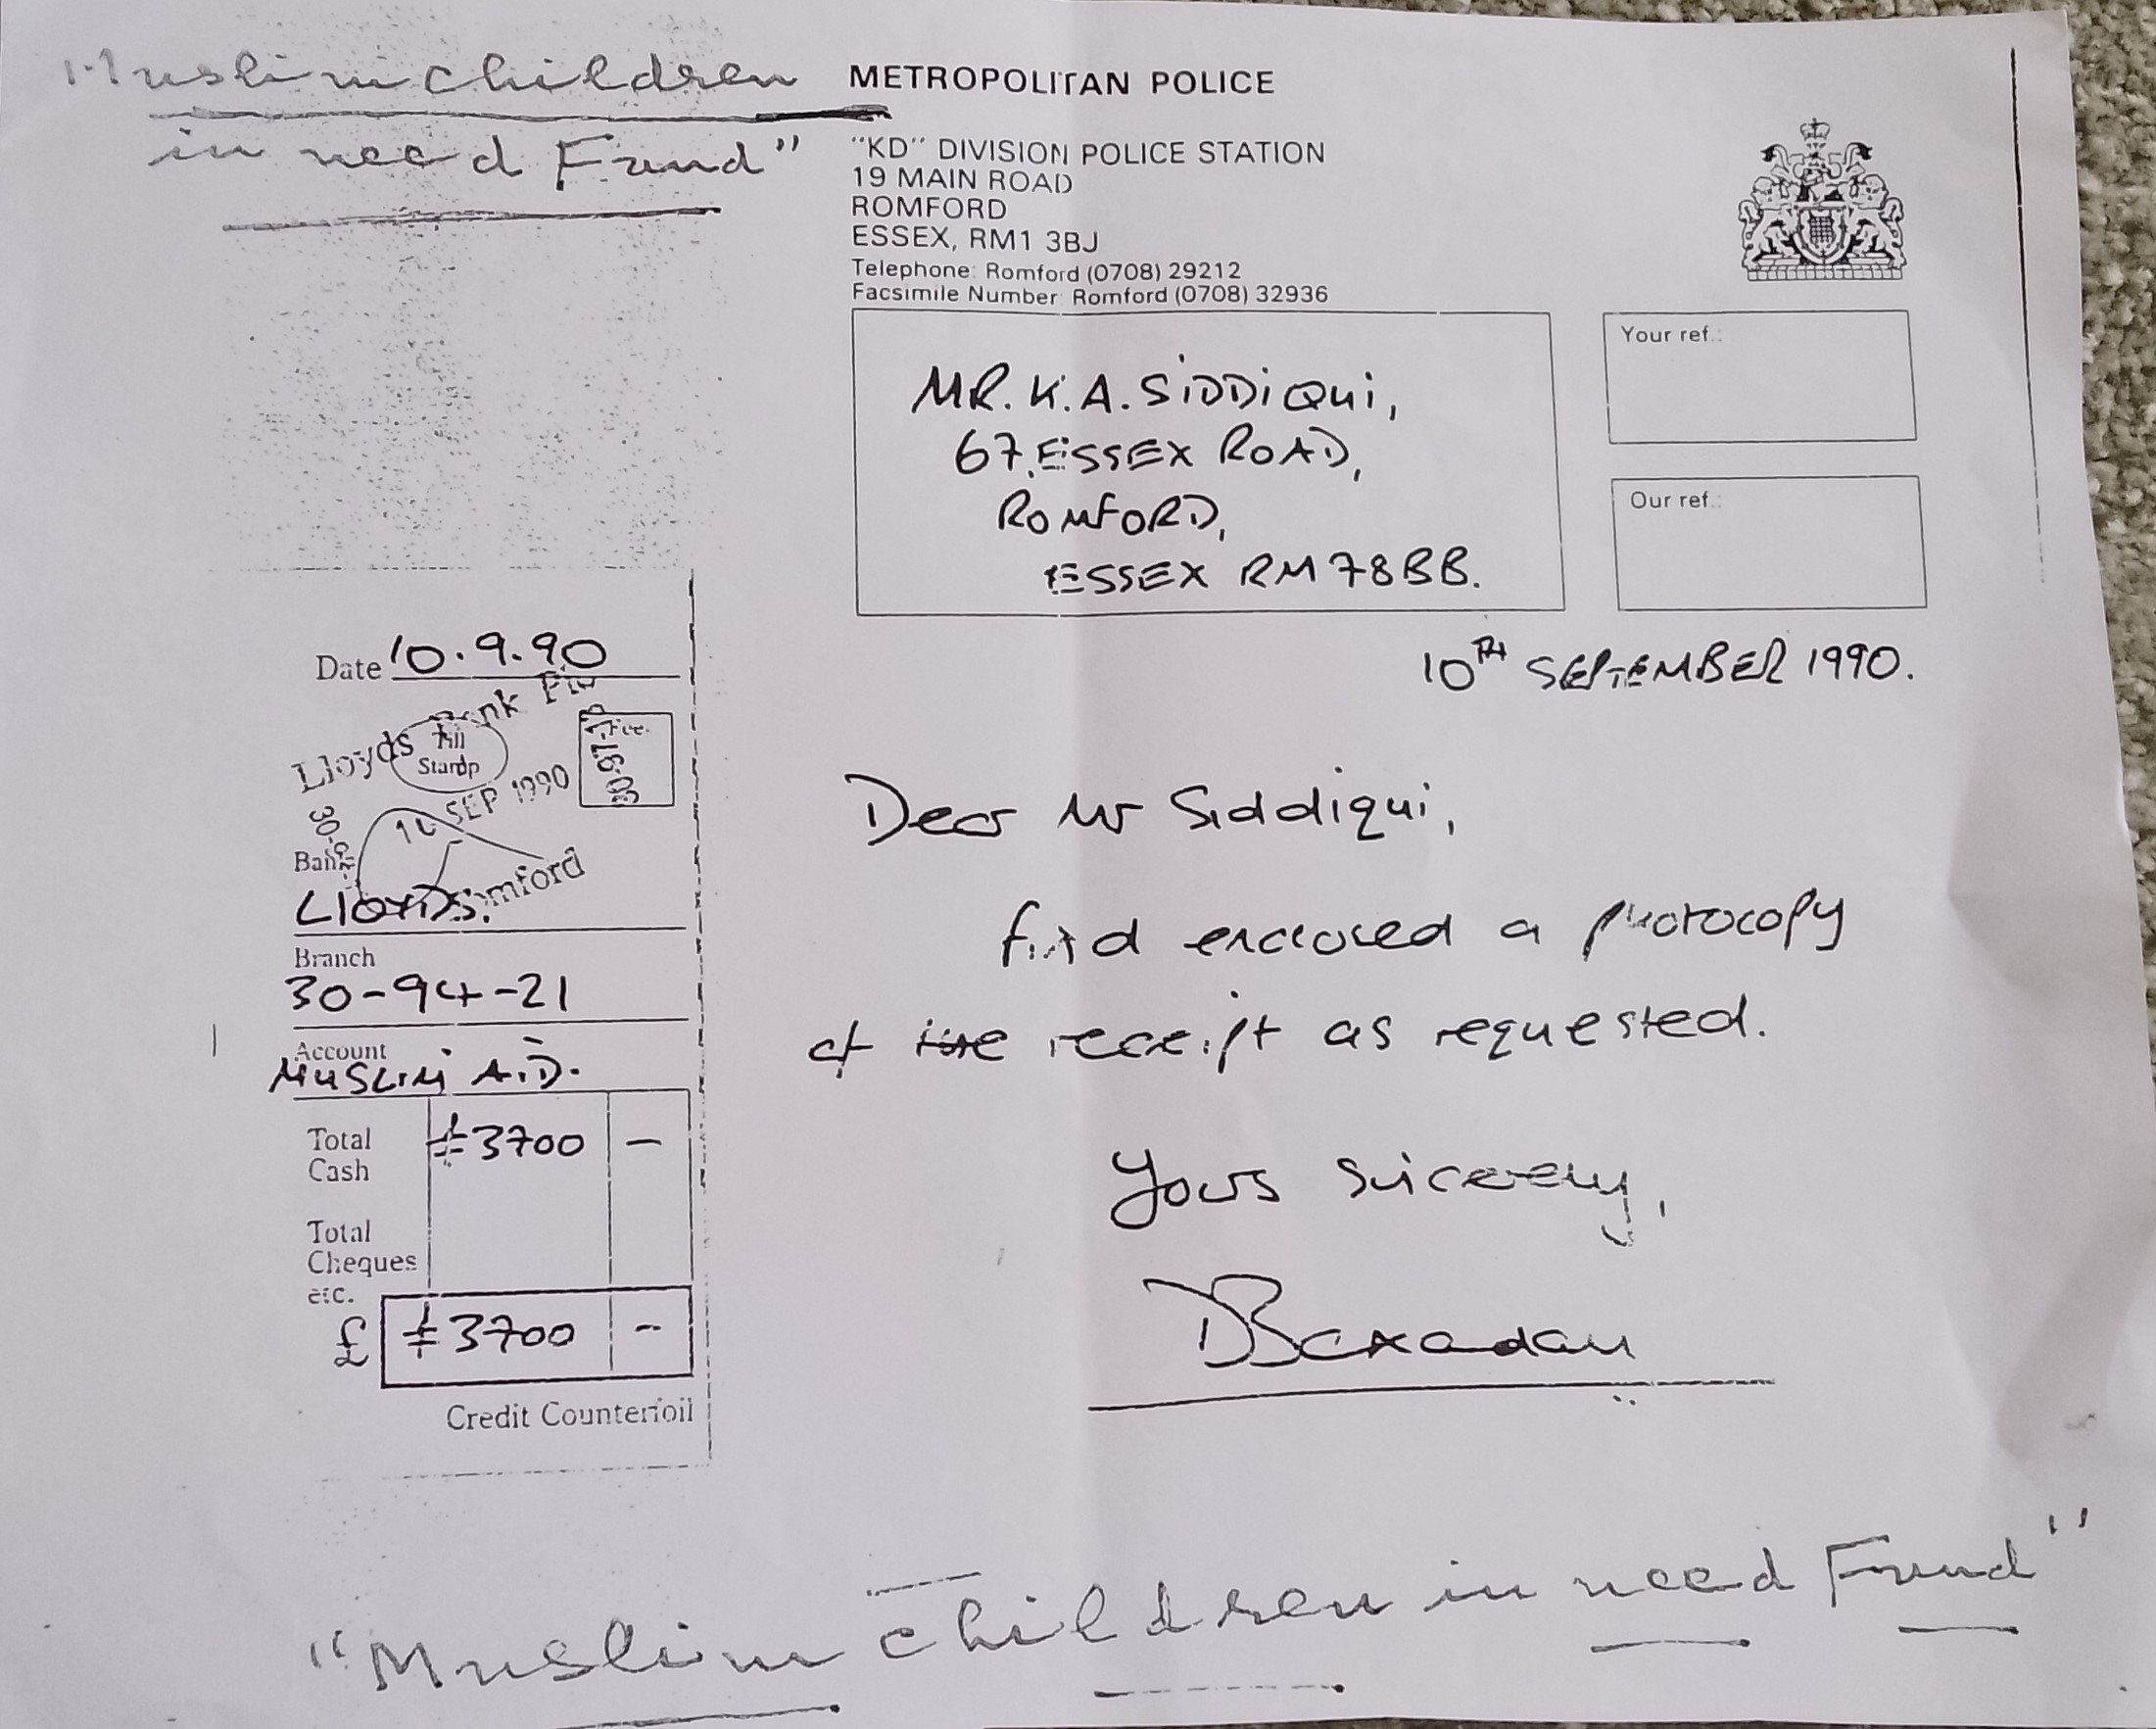 Muslim children
in need Fund"
METROPOLITAN POLICE
"KD" DIVISION POLICE STATION
19 MAIN ROAD
ROMFORD
ESSEX, RM1 3BJ
Telephone: Romford (0708) 29212
Facsimile Number: Romford (0708) 32936
MR. K. A. SIDDIQUI,
67, ESSEX ROAD,
ROMFORD,
ESSEX RM7 8BB.
Your ref.:
Our ref.:
10TH SEPTEMBER 1990.
Date 10.9.90
Lloyds Bank Plc
Till
Stamp
Fee
SEP 1990
Bank
LLOYDS.
Branch
30-94-21
Account
MUSLIM AID.
Total
Cash
£3700 -
Total
Cheques
etc.
£ £3700 -
Credit Counterfoil
Dear Mr Siddiqui,
find enclosed a photocopy
of the receipt as requested.
Yours sincerely,
"Muslim children in need Fund"